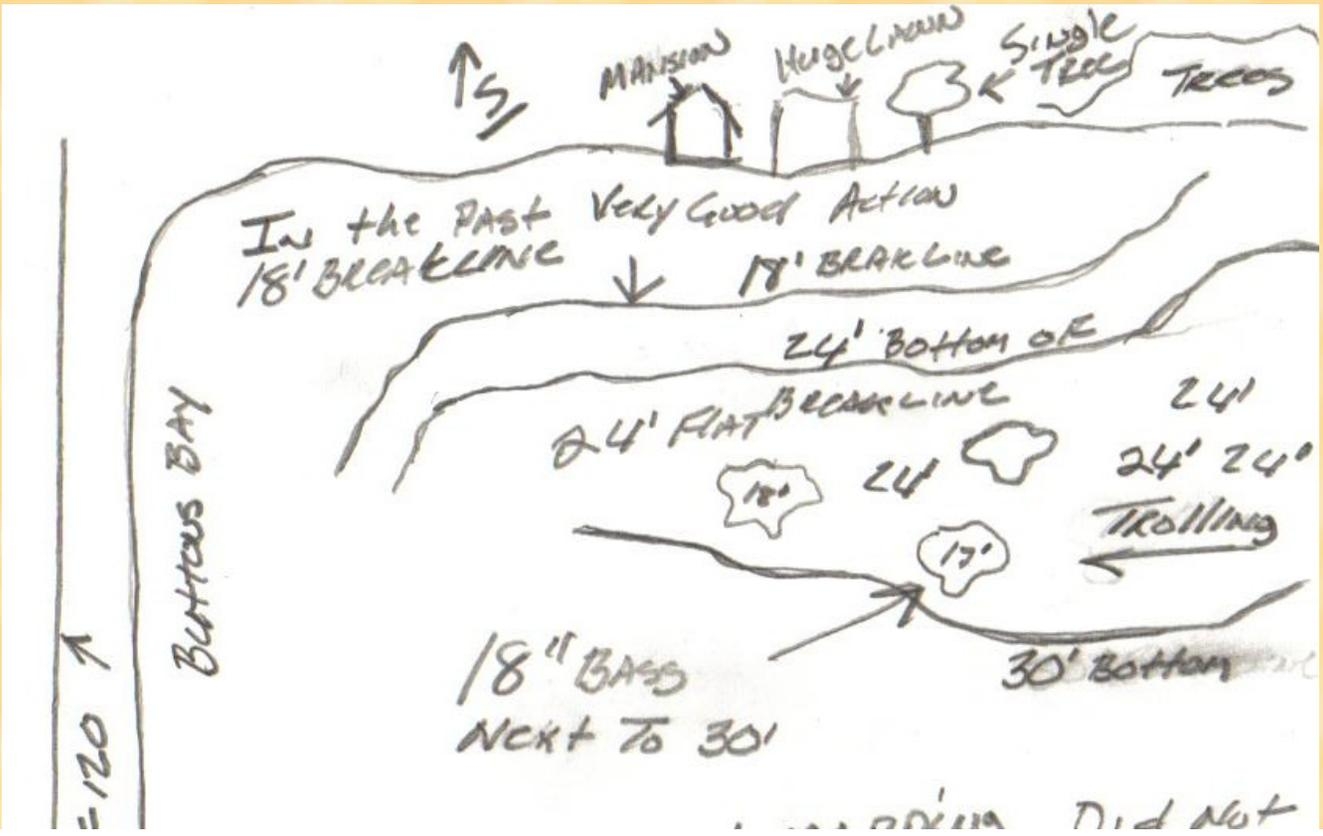 ↑ S
MANSION
Huge LAWN
Single
Tree
Trees
In the Past Very Good Action
18' BREAKLINE
18' BRAKLINE
24' Bottom of
BREAKLINE
24' FLAT
24'
24' 24'
18'
24'
Trolling
17'
Buttons BAY
18" BASS
Next To 30'
30' Bottom
=120 →
Did Not